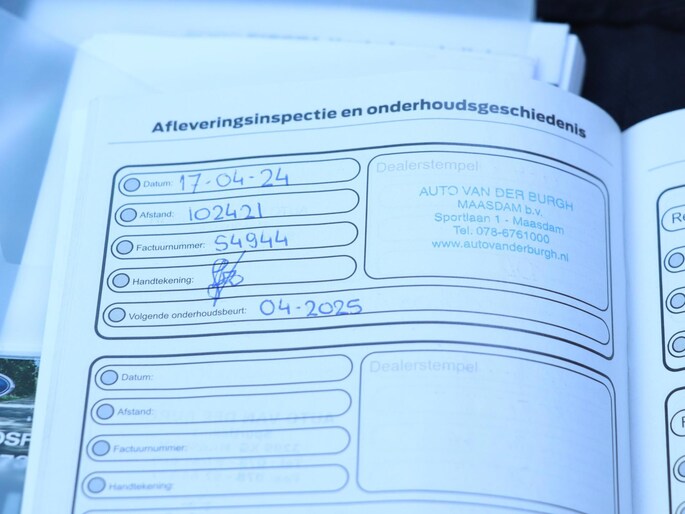 Afleveringsinspectie en onderhoudsgeschiedenis
Datum: 17-04-24
Afstand: 102421
Factuurnummer: 54944
Handtekening:
Volgende onderhoudsbeurt: 04-2025
Dealerstempel
AUTO VAN DER BURGH
MAASDAM b.v.
Sportlaan 1 - Maasdam
Tel. 078-6761000
www.autovanderburgh.nl
Datum:
Afstand:
Factuurnummer:
Handtekening:
Dealerstempel